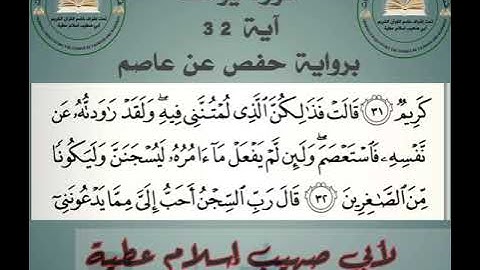 آية 32
برواية حفص عن عاصم
كَرِيمٌ ٣١ قَالَتْ فَذَٰلِكُنَّ ٱلَّذِى لُمْتُنَّنِى فِيهِ ۖ وَلَقَدْ رَٰوَدتُّهُۥ عَن
نَّفْسِهِۦ فَٱسْتَعْصَمَ ۖ وَلَئِن لَّمْ يَفْعَلْ مَآ ءَامُرُهُۥ لَيُسْجَنَنَّ وَلَيَكُونًا
مِّنَ ٱلصَّٰغِرِينَ ٣٢ قَالَ رَبِّ ٱلسِّجْنُ أَحَبُّ إِلَىَّ مِمَّا يَدْعُونَنِىٓ
لأبي صهيب إسلام عطية